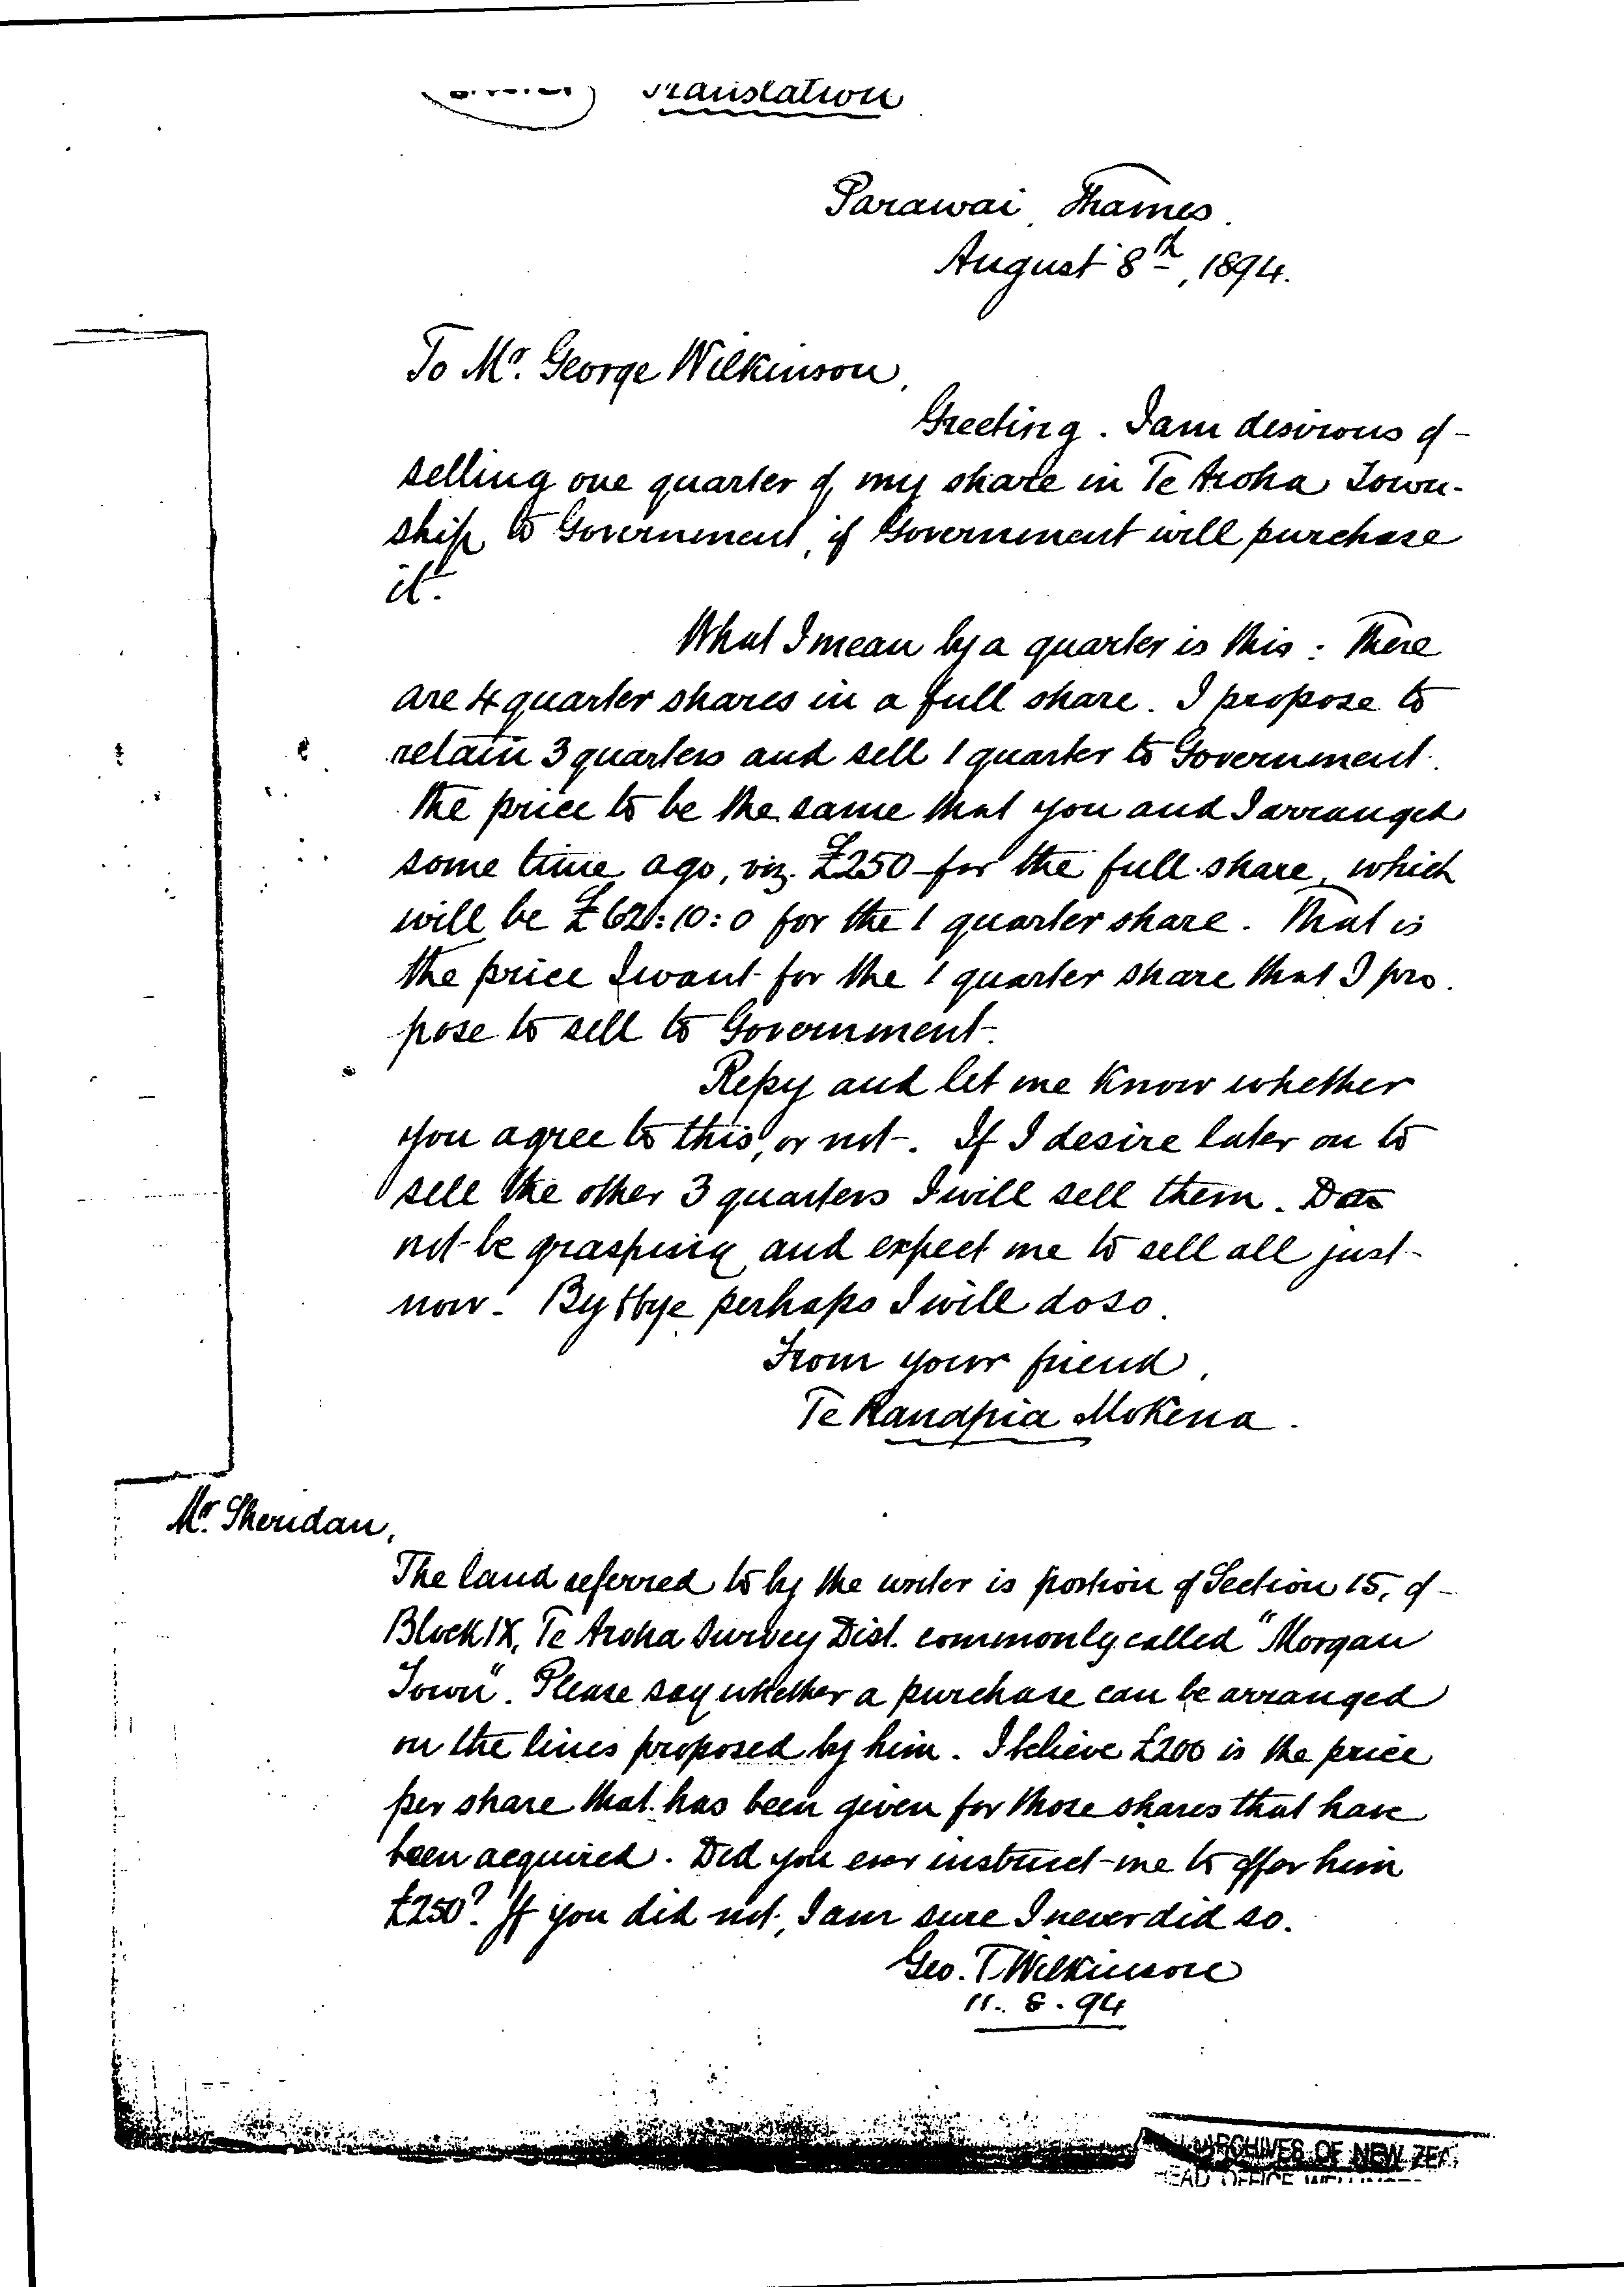 Translation
Parawai, Thames.
August 8th, 1894.
To Mr. George Wilkinson,
Greeting. I am desirous of
selling one quarter of my share in Te Aroha Town-
ship to Government, if Government will purchase
it.
What I mean by a quarter is this: There
are 4 quarter shares in a full share. I propose to
retain 3 quarters and sell 1 quarter to Government.
the price to be the same that you and I arranged
some time ago, viz. £250 for the full share, which
will be £62:10:0 for the 1 quarter share. That is
the price I want for the 1 quarter share that I pro-
pose to sell to Government.
Repy and let me know whether
you agree to this, or not. If I desire later on to
sell the other 3 quarters I will sell them. Do
not be grasping and expect me to sell all just
now. By & bye perhaps I will do so.
From your friend,
Te Ranapia Mokena.
Mr. Sheridan,
The land referred to by the writer is portion of Section 15, of
Block IX, Te Aroha Survey Dist. commonly called "Morgan
Town". Please say whether a purchase can be arranged
on the lines proposed by him. I believe £200 is the price
per share that has been given for those shares that have
been acquired. Did you ever instruct me to offer him
£250? If you did not, I am sure I never did so.
Geo. T. Wilkinson
11.8.94
ARCHIVES OF NEW ZEA
HEAD OFFICE